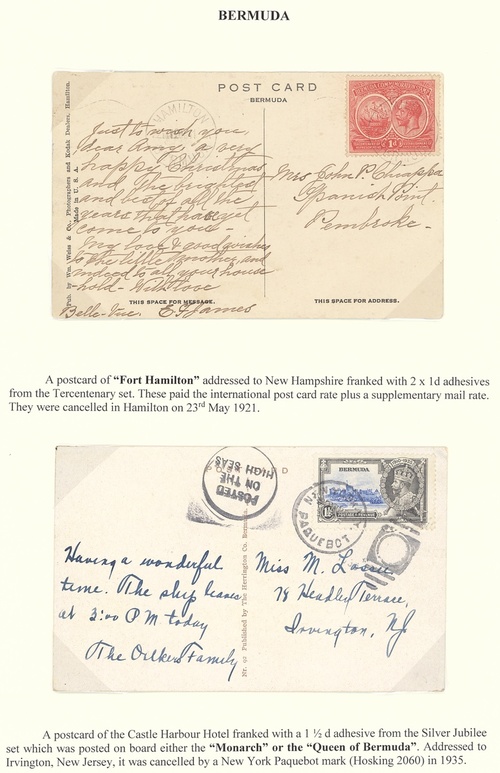 BERMUDA
POST CARD
BERMUDA
HAMILTON
BERMUDA COMMEMORATION STAMP
1d
Pub. by Wm. Weiss & Co., Photographers and Kodak Dealers, Hamilton.
Made in U. S. A.
Just to wish you,
dear Amy a very
happy Christmas
and the brightest
and best of all the
years that have yet
come to you -
My love & good wishes
to the little mother, and
indeed to all your house
-hold - With love
Belle-Vue. E G James
Mrs John P
Spanish Point.
Pembroke -
THIS SPACE FOR MESSAGE.
THIS SPACE FOR ADDRESS.
A postcard of “Fort Hamilton” addressed to New Hampshire franked with 2 x 1d adhesives
from the Tercentenary set. These paid the international post card rate plus a supplementary mail rate.
They were cancelled in Hamilton on 23rd May 1921.
POSTED
ON THE
HIGH SEAS
BERMUDA
1½
PAQUEBOT
Nr. 91 Published by The Herrington Co.
Having a wonderful
time. The ship leaves
at 3:00 PM today
The Family
Miss M.
78 Headley Terrace,
Irvington, NJ
A postcard of the Castle Harbour Hotel franked with a 1 ½ d adhesive from the Silver Jubilee
set which was posted on board either the “Monarch” or the “Queen of Bermuda”. Addressed to
Irvington, New Jersey, it was cancelled by a New York Paquebot mark (Hosking 2060) in 1935.